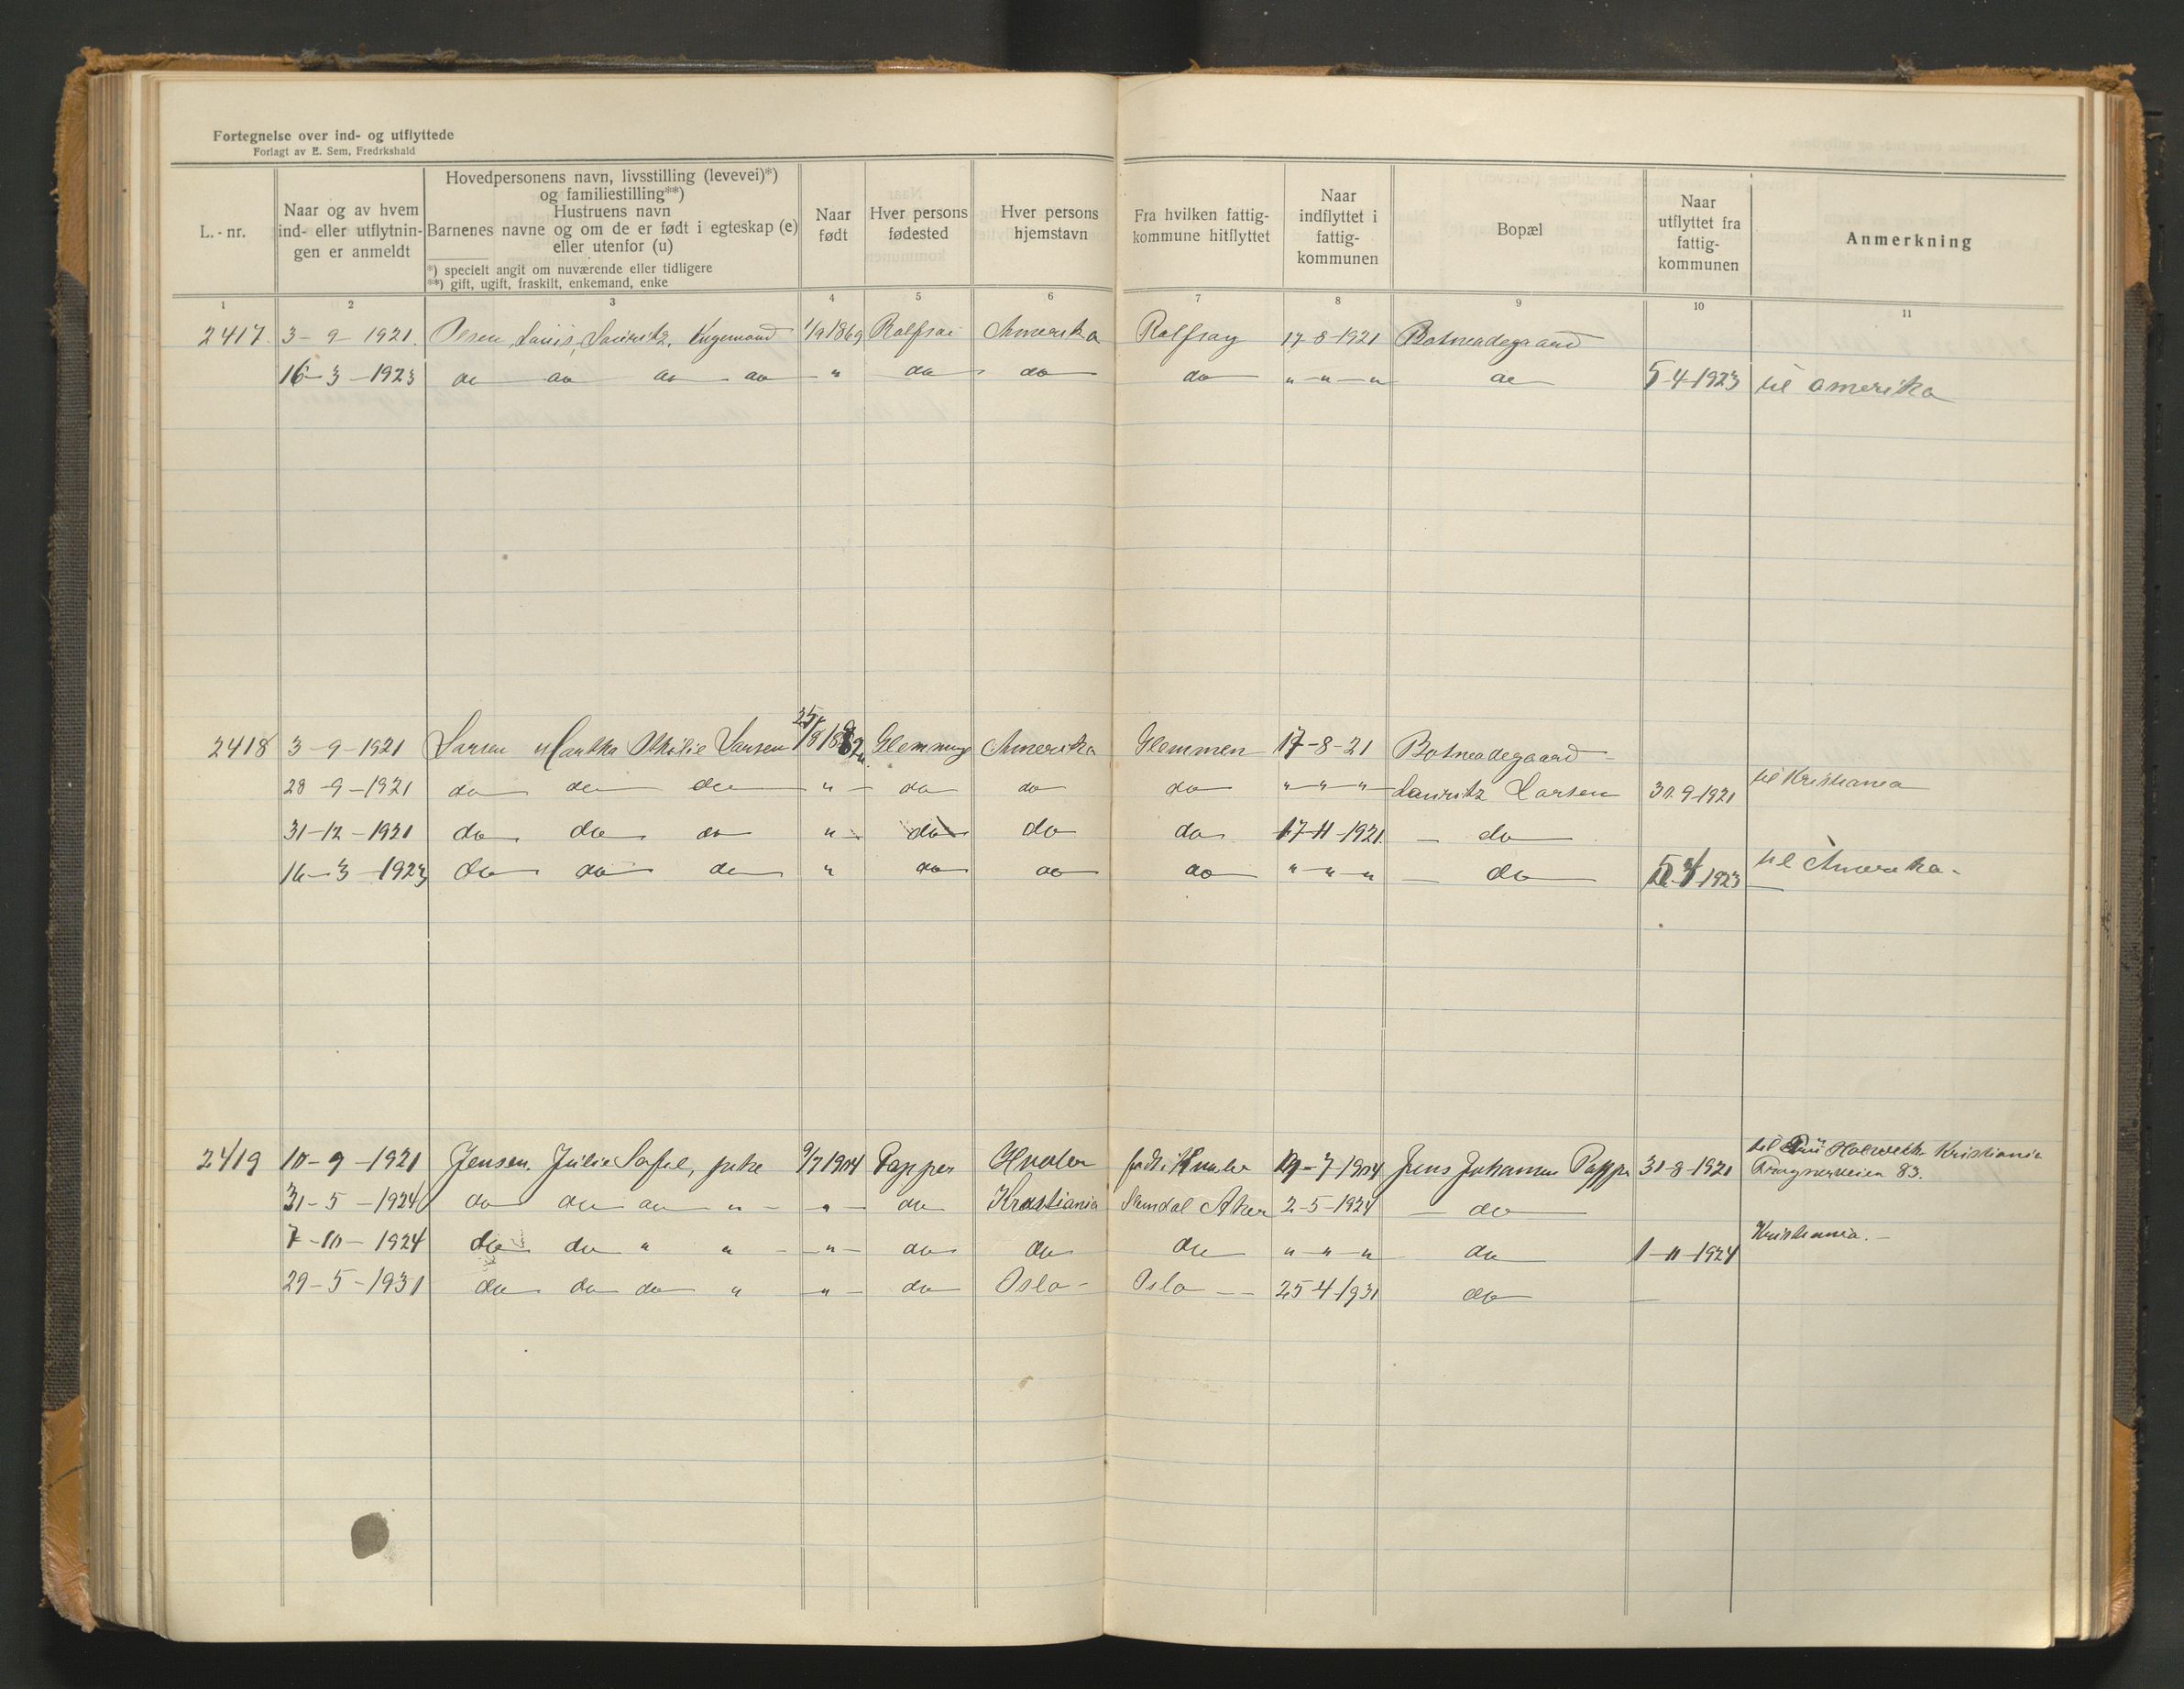 Fortegnelse over ind- og utflyttede
Forlagt av E. Sem, Fredrkshald
L.-nr.
Naar og av hvem ind- eller utflytnin- gen er anmeldt
Hovedpersonens navn, livsstilling (levevei)*)
og familiestilling**)
Hustruens navn
Barnenes navne og om de er født i egteskap (e)
eller utenfor (u)
*) specielt angit om nuværende eller tidligere
**) gift, ugift, fraskilt, enkemand, enke
Naar født
Hver persons fødested
Hver persons hjemstavn
Fra hvilken fattig- kommune hitflyttet
Naar indflyttet i fattig- kommunen
Bopæl
Naar utflyttet fra fattig- kommunen
Anmerkning
1 2 3 4 5 6 7 8 9 10 11
2417. 3-9-1921. Lauritz, 1/9 1869 Amerika Rolfsøy 17-8-1921 Botneadegaard
16-3-1923 do do do do " do do do " " " do 5-4-1923 til amerika
2418 3-9-1921 Larsen Martha Othilie Larsen Amerika Glemmen 17-8-21 Botneadegaard
28-9-1921 do do do " do do do " " " Lauritz Larsen 30.9-1921 til Kristiania
31-12-1921 do do do " do do do 17-11-1921. do
16-3-1923 do do do " do do do " " " do 1923 til Amerika.
2419 10-9-1921 Jensen, Julie 9/7 1904 Papper Hvaler født i Hvaler 9-7-1904 Jens Johannes Papper 31-8-1921 til Kristiania
83.
31-5-1924 do do do " " do Kristiania Aker 2-5-1924 do
7-10-1924 do do " " " do do do " " " do 1-11-1924 Kristiania.
29-5-1931 do do do " " do Oslo Oslo 25-4-1931 do